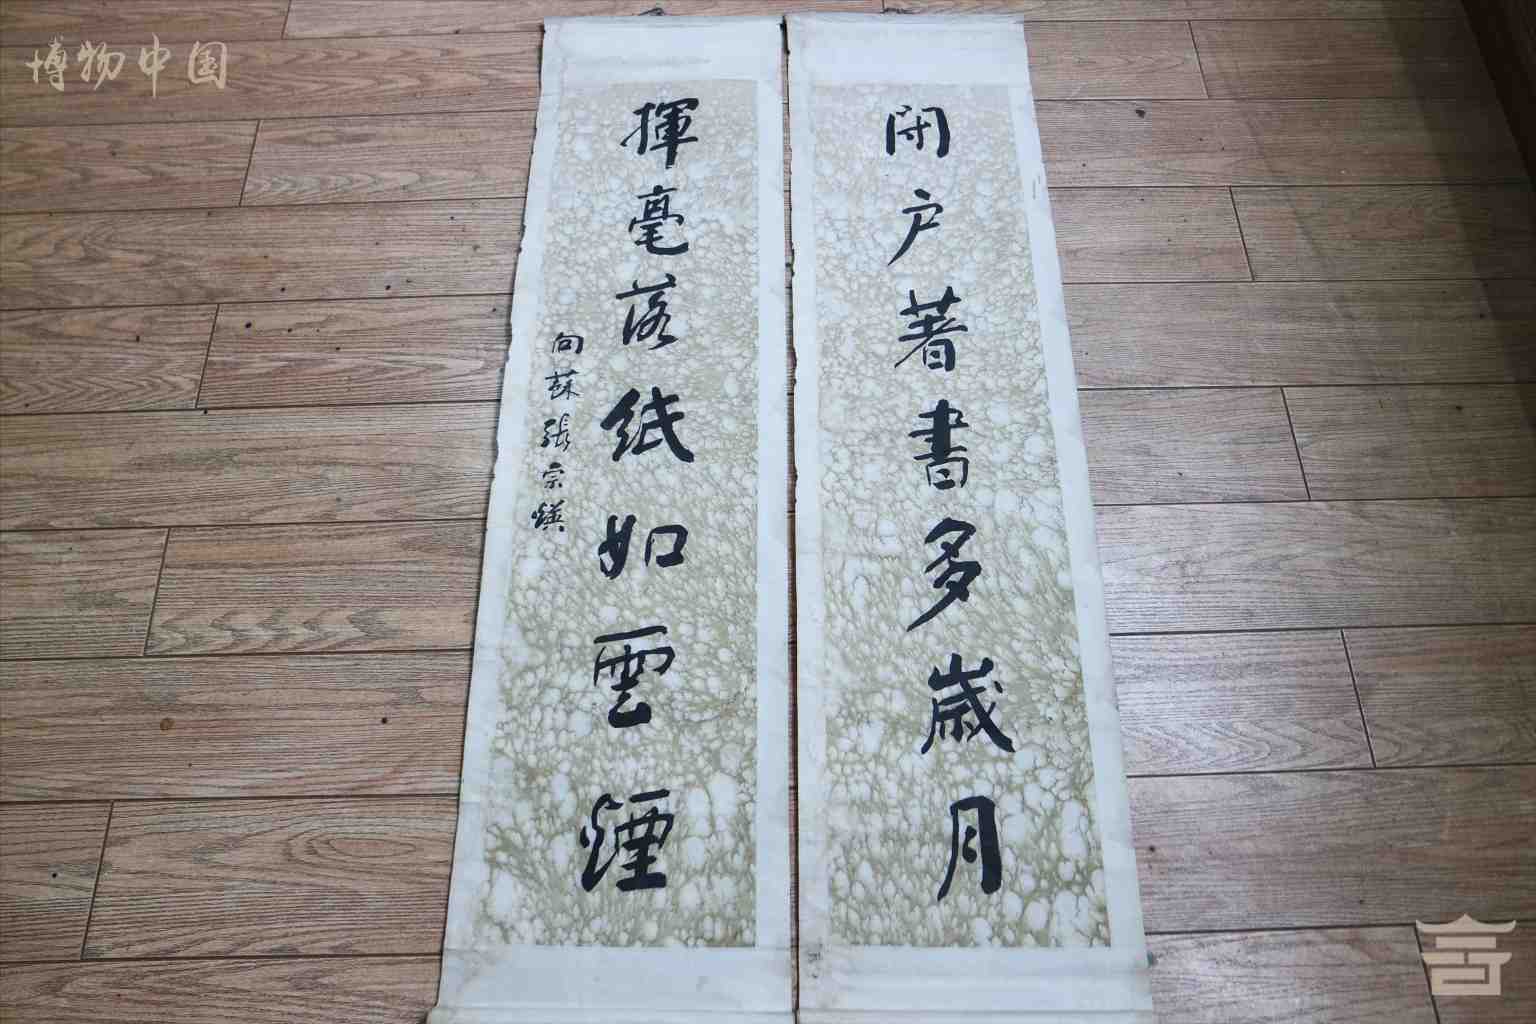 博物中国
閉户著書多歲月
揮毫落紙如雲煙
向蘇張宗煐